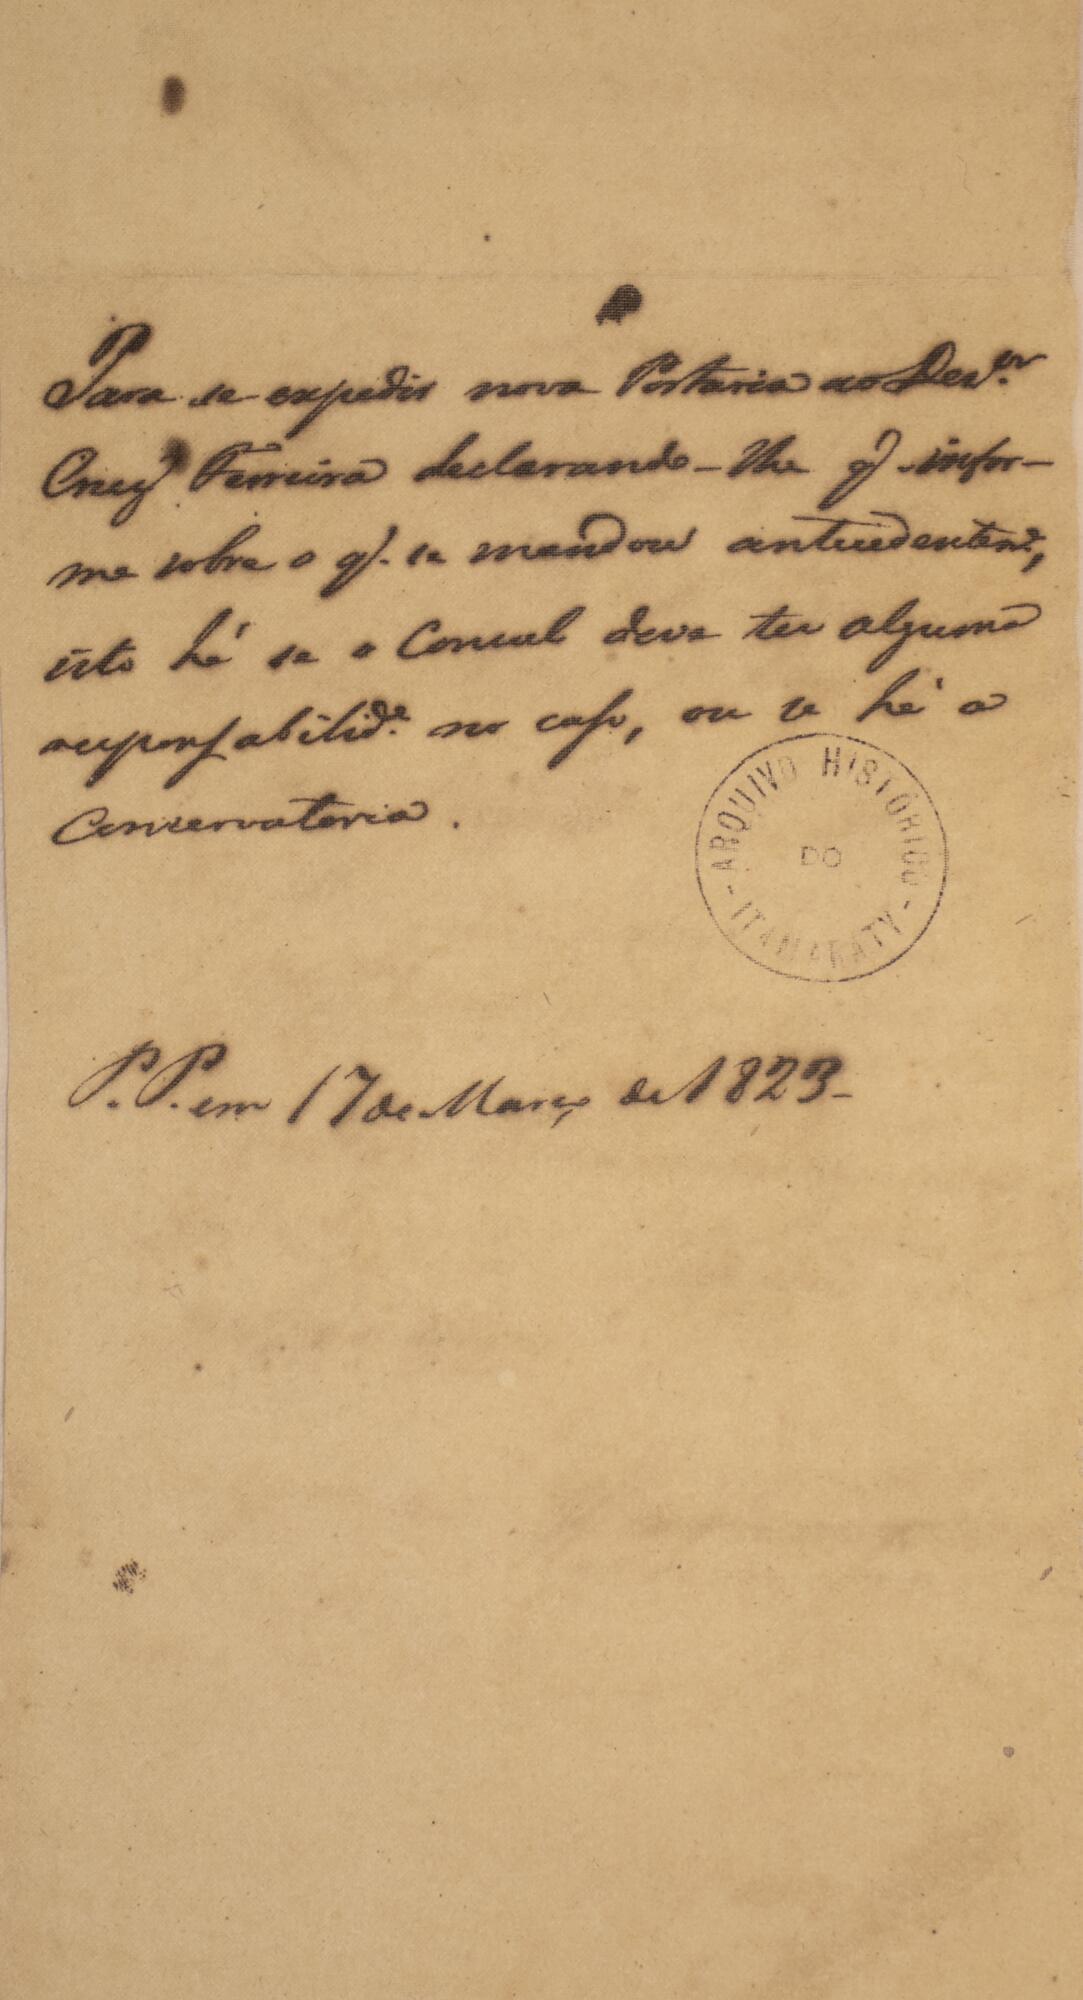 Para se expedir nova Portaria ao Dez.or
Cruz Ferreira declarando-lhe q. infor-
me sobre o q. se mandou antecedentem.e,
isto hé se o Consul deve ter alguma
responsabilid.e no caso, ou se hé a
Conservatoria.
ARQUIVO HISTÓRICO
DO
- ITAMARATY -
P.P. em 17 de Março de 1823-